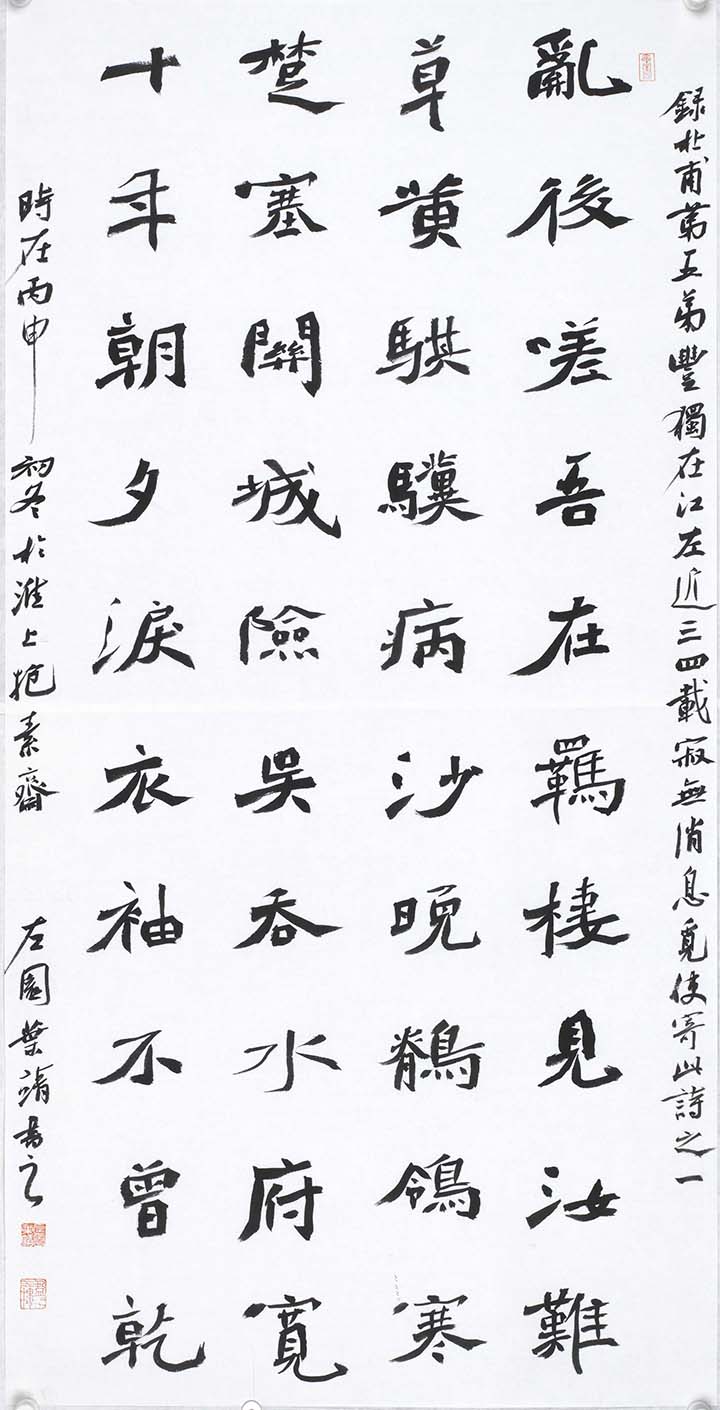 録杜甫第五弟豐獨在江左近三四載寂無消息覓使寄此詩之一
亂後嗟吾在羈棲見汝難
草黃騏驥病沙晚鶺鴒寒
楚塞關城險吳吞水府寬
十年朝夕淚衣袖不曾乾
時在丙申初冬於淮上抱素齋左園葉靖書之